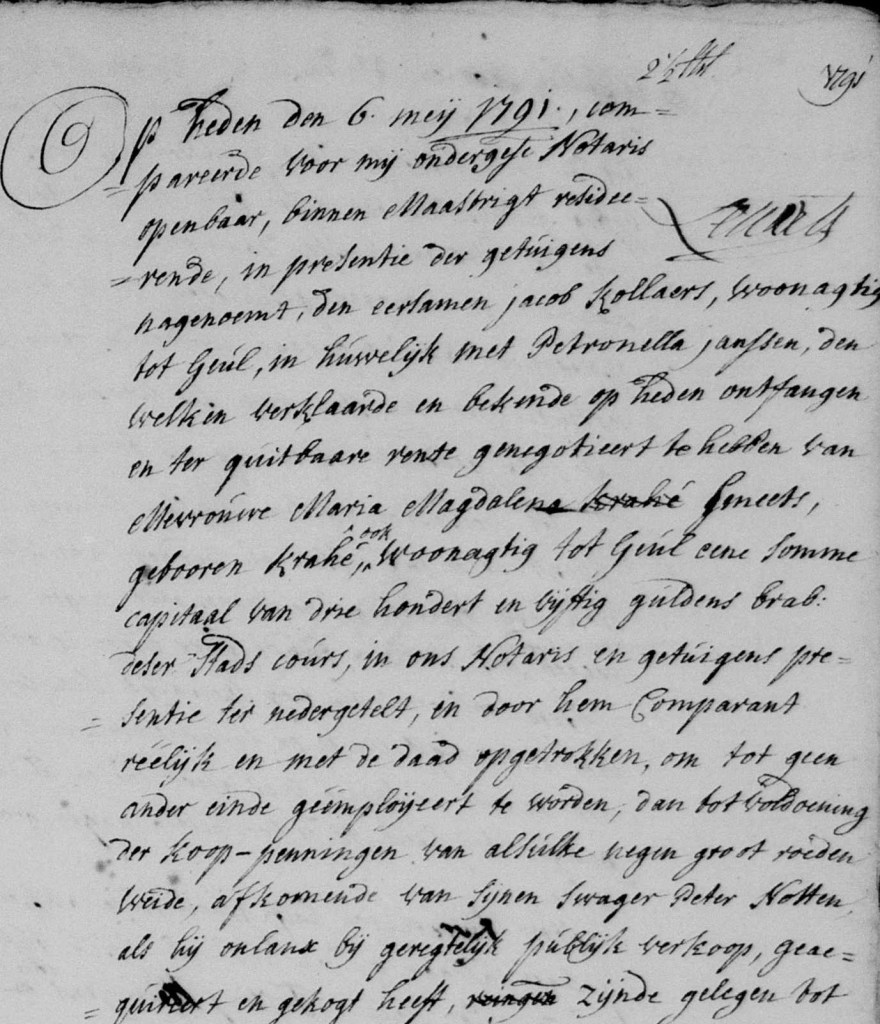 1791
Op heden den 6. meij 1791., com=
=pareerde voor mij ondergesc Notaris
openbaar, binnen Maastrigt residee=
=rende, in presentie der getuigens
nagenoemt, den eersamen jacob Kollaers, woonagtig
tot Geul, in huwelijk met Petronella janssen, den
welken verklaarde en bekende op heden ontfangen
en ter quitbaare rente genegotieert te hebben van
Mevrouwe Maria Magdalena Krahé Smeets,
gebooren Krahé, ook woonagtig tot Geul eene somme
capitaal van drie hondert en vijftig guldens brab:
deser stads cours, in ons Notaris en getuigens pre=
=sentie ter nedergetelt, en door hem Comparant
réelijk en met de daad opgetrokken, om tot geen
ander einde geëmploijeert te worden, dan tot voldoening
der koop-penningen van alsulke negen groot roeden
weide, afkomende van sijnen swager Peter Notten,
als hij onlanx bij geregtelijk publijk verkoop, geac=
=quireert en gekogt heeft, zijnde gelegen tot